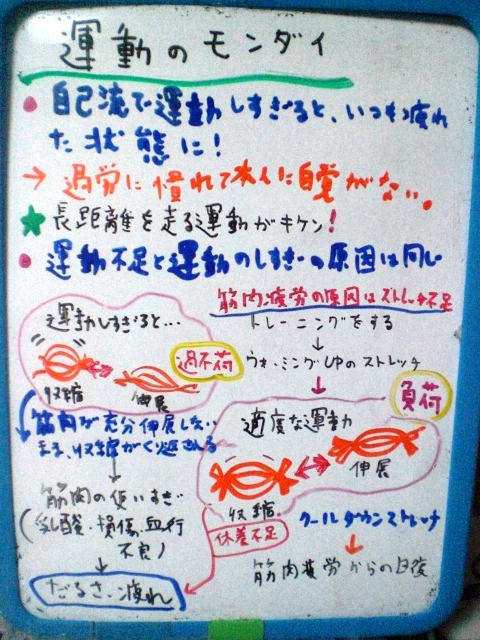 運動のモンダイ
● 自己流で運動しすぎると、いつも疲れ
た状態に!
→ 過労に慣れて本人に自覚がない。
★ 長距離を走る運動がキケン!
● 運動不足と運動のしすぎの原因は同じ
筋肉疲労の原因はストレッチ不足
運動しすぎると…
過不荷
収縮
伸展
筋肉が充分伸展しない
まま、収縮がくり返される
↓
筋肉の使いすぎ
(乳酸・損傷・血行
不良)
↓
だるさ・疲れ
トレーニングをする
↓
ウォーミングUPのストレッチ
↓
負荷
適度な運動
収縮
伸展
休養不足
クールダウンストレッチ
↓
筋肉疲労からの回復